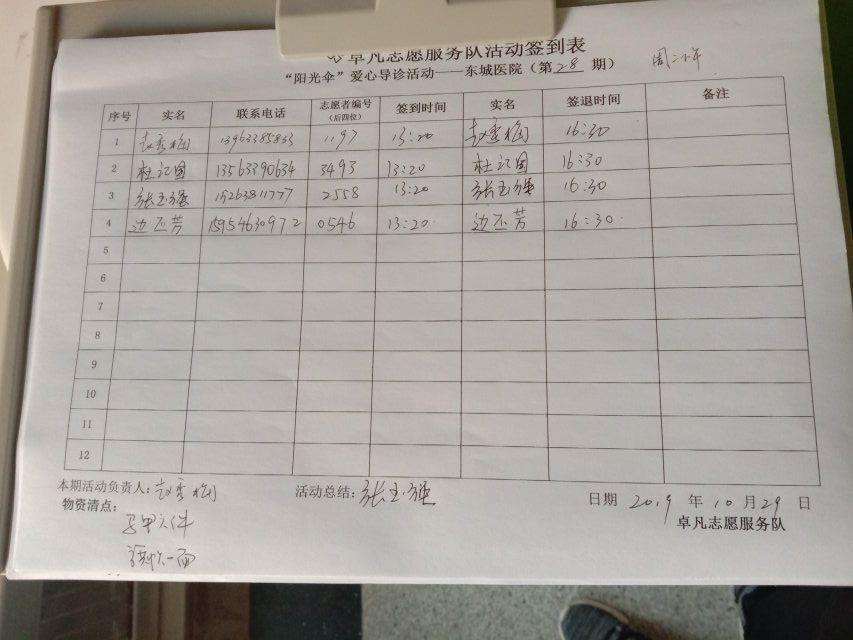 卓凡志愿服务队活动签到表
“阳光伞”爱心导诊活动——东城医院（第28期） 周二下午
序号 实名 联系电话 志愿者编号（后四位） 签到时间 实名 签退时间 备注
1 赵秀梅 13963385833 1197 13:20 赵秀梅 16:30
2 杜记国 13563390634 3493 13:20 杜记国 16:30
3 张玉强 15263811777 2558 13:20 张玉强 16:30
4 边丕芳 15954630972 0546 13:20 边丕芳 16:30
5
6
7
8
9
10
11
12
本期活动负责人：赵秀梅 活动总结：张玉强 日期 2019 年 10 月 29 日
物资清点： 卓凡志愿服务队
马甲六件
旗帜一面